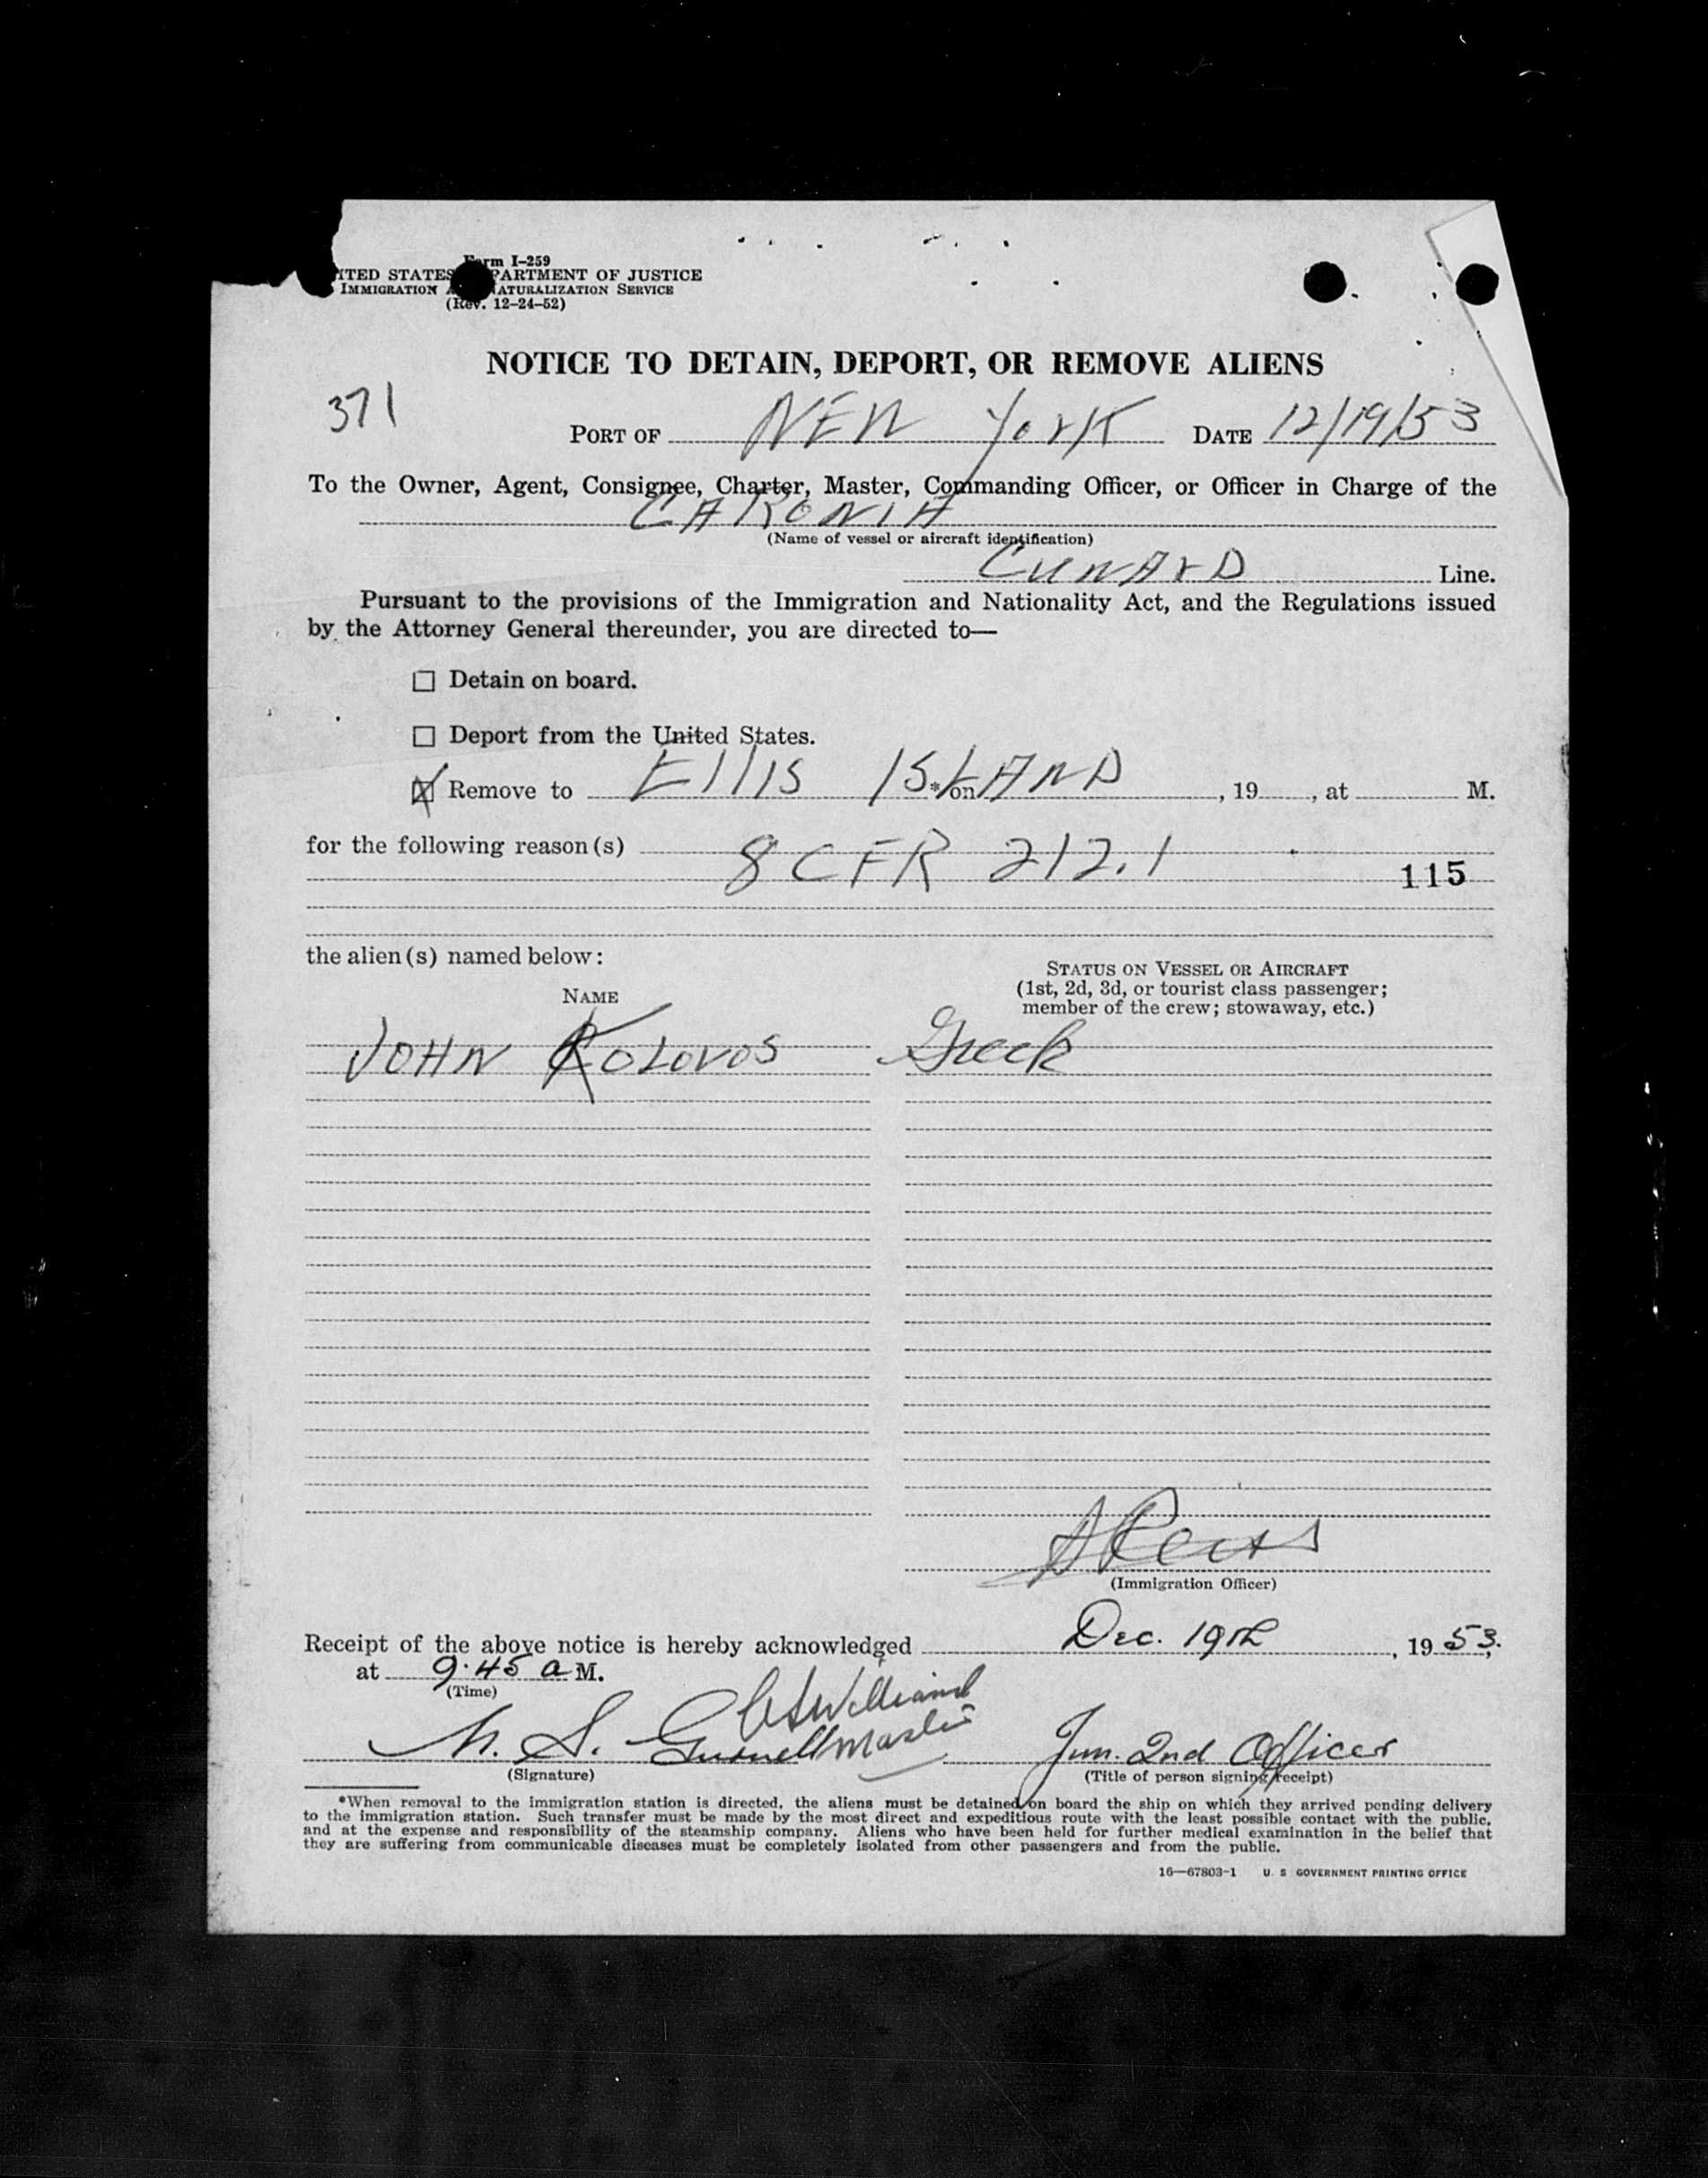 Form I–259
UNITED STATES DEPARTMENT OF JUSTICE
IMMIGRATION AND NATURALIZATION SERVICE
(Rev. 12–24–52)
NOTICE TO DETAIN, DEPORT, OR REMOVE ALIENS
371
PORT OF NEW YORK DATE 12/19/53
To the Owner, Agent, Consignee, Charter, Master, Commanding Officer, or Officer in Charge of the
CARONIA
(Name of vessel or aircraft identification)
CUNARD Line.
Pursuant to the provisions of the Immigration and Nationality Act, and the Regulations issued
by the Attorney General thereunder, you are directed to—
Detain on board.
Deport from the United States.
Remove to Ellis ISLAND *on , 19 , at M.
for the following reason(s) 8 CFR 212.1
115
the alien(s) named below:
STATUS ON VESSEL OR AIRCRAFT
(1st, 2d, 3d, or tourist class passenger;
member of the crew; stowaway, etc.)
NAME
JOHN KOLOVOS Greek
(Immigration Officer)
Receipt of the above notice is hereby acknowledged Dec. 19th, 1953.
at 9.45 a M.
(Time)
Williams
Master
Jun. 2nd Officer
(Signature) (Title of person signing receipt)
*When removal to the immigration station is directed, the aliens must be detained on board the ship on which they arrived pending delivery
to the immigration station. Such transfer must be made by the most direct and expeditious route with the least possible contact with the public,
and at the expense and responsibility of the steamship company. Aliens who have been held for further medical examination in the belief that
they are suffering from communicable diseases must be completely isolated from other passengers and from the public.
16—67803-1 U. S GOVERNMENT PRINTING OFFICE